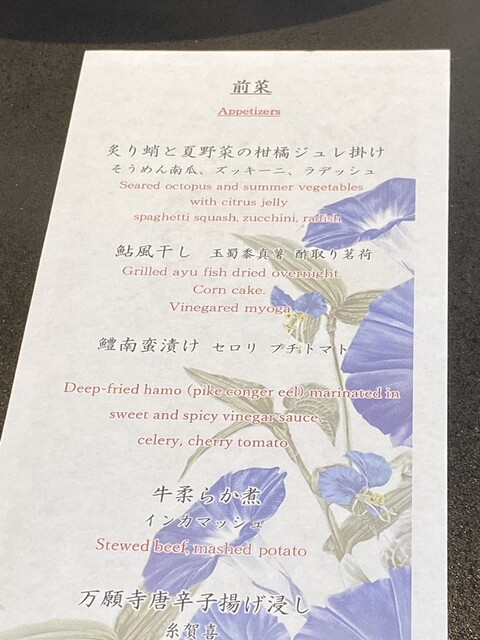 前菜
Appetizers
炙り蛸と夏野菜の柑橘ジュレ掛け
そうめん南瓜、ズッキーニ、ラデッシュ
Seared octopus and summer vegetables
with citrus jelly
spaghetti squash, zucchini, radish
鮎風干し 玉蜀黍真薯 酢取り茗荷
Grilled ayu fish dried overnight.
Corn cake.
Vinegared myoga
鱧南蛮漬け セロリ プチトマト
Deep-fried hamo (pike conger eel) marinated in
sweet and spicy vinegar sauce.
celery, cherry tomato
牛柔らか煮
インカマッシュ
Stewed beef, mashed potato
万願寺唐辛子揚げ浸し
糸賀喜